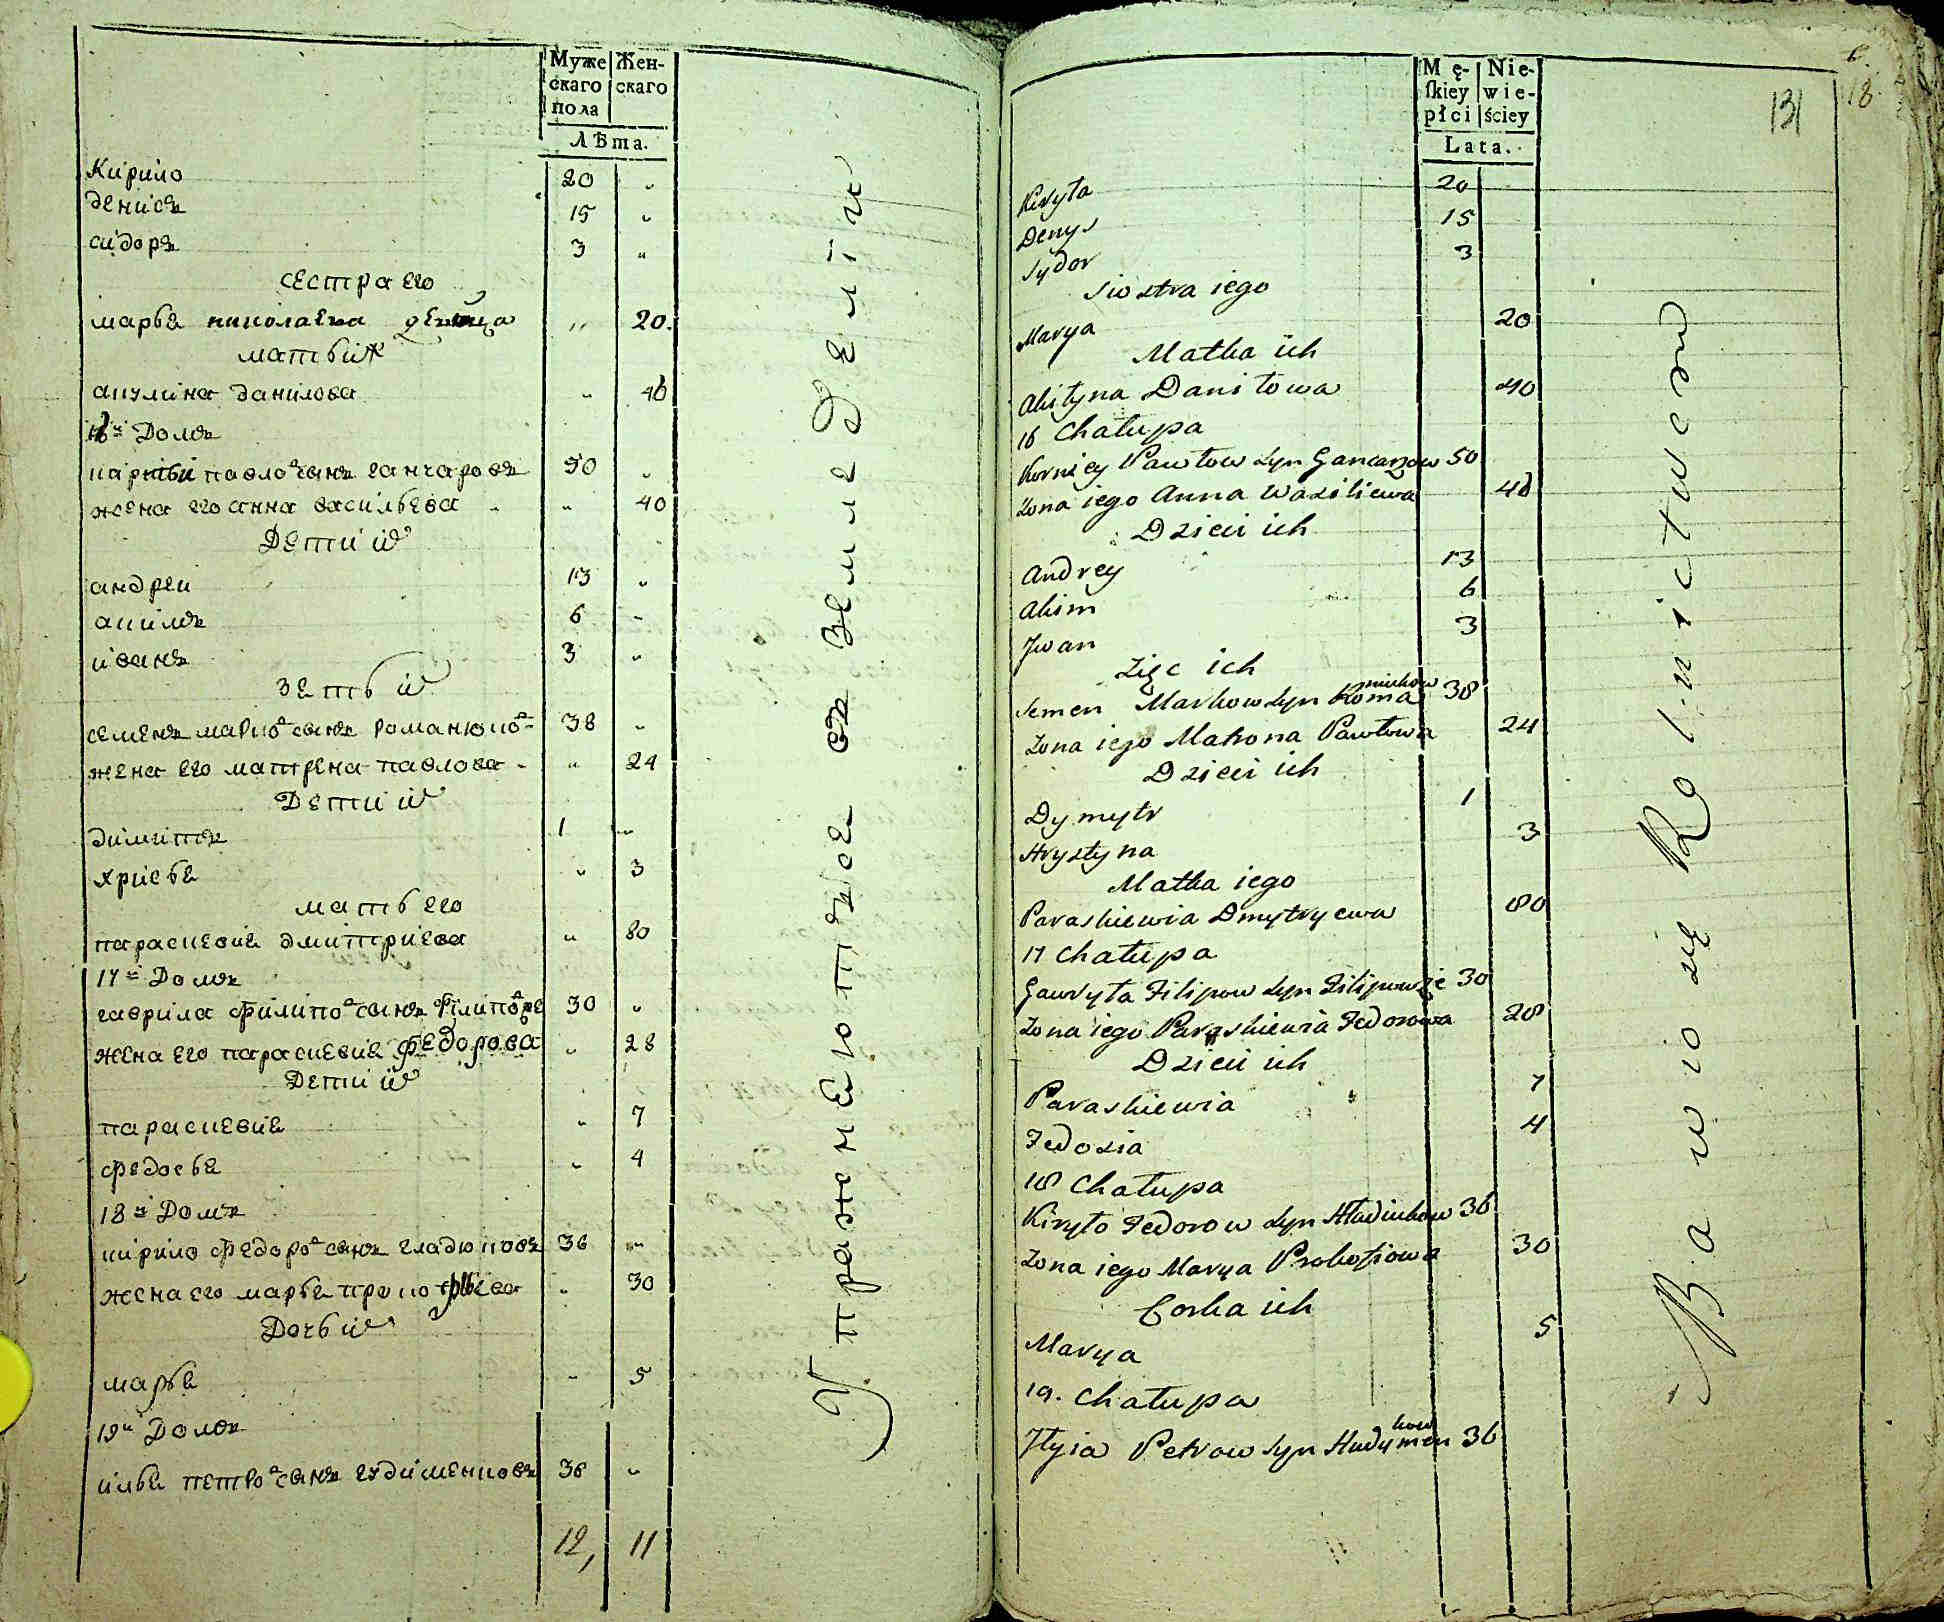 Муже
скаго
пола
Жен-
скаго
Лѣта.
Кирило 20 "
денисъ 15 "
сидоръ 3 "
сестра его
марья николаева девица " 20.
мать их
акулина данилова " 40
16й Домъ
карнѣй павловъ сынъ ганчаровъ 50 "
жена его анна васильева " 40
Дети их
андреи 13 "
акимъ 6 "
иванъ 3 "
зеть их
семенъ марковъ сынъ романюков 38 "
жена его матрена павлова " 24
Дети их
димитръ 1 "
христя " 3
мать его
параскевия дмитриева " 80
17й Домъ
гаврила филипов сынъ 30 "
жена его параскевия федорова " 28
Дети их
параскевия " 7
федосья " 4
18й Домъ
кирило федоров сынъ гладюковъ 36 "
жена его марья прокофьева " 30
Дочь их
марья " 5
19й Домъ
илья петров сынъ гудименковъ 36 "
12, 11
Упражнеютцѣе въ земледелiи
Mę-
skiey
płci
Nie-
wie-
ściey
Lata.
6.
18
131
Kiryła 20
Denys 15
Sydor 3
Siostra iego
Marya 20
Matka ich
Akilyna Daniłowa 40
16 Chałupa
Korniey Pawłow Syn Gancarzow 50
Zona iego Anna Wasiliewa 40
Dzieci ich
Andrey 13
Akim 6
Jwan 3
Zięc ich
Semen Markow Syn Romaniukow 38
Zona iego Matrona Pawłowa 24
Dzieci ich
Dymytr 1
Hrystyna 3
Matka iego
Paraskiewia Dmytryewa 80
17 Chałupa
Gawryła Filipow Syn 30
Zona iego Paraskiewia Fedorowa 28
Dzieci ich
Paraskiewia 7
Fedosia 4
18 Chałupa
Kiryło Fedorow Syn Hładiukow 36
Zona iego Marya Prokofiowa 30
Corka ich
Marya 5
19. Chałupa
Jłyia Petrow Syn Hudymenkow 36
Bawio się Rolnictwem